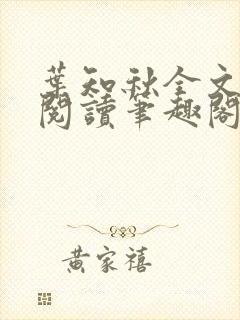 葉知秋全文
閱讀筆趣閣
黃家禧